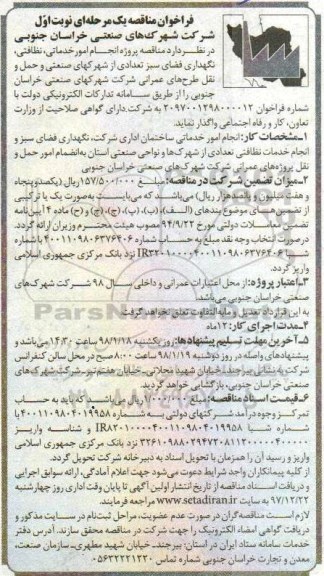 فراخوان مناقصه یک مرحله‌ای نوبت اول
شرکت شهرک‌های صنعتی خراسان جنوبی
در نظر دارد مناقصه پروژه انجام امور خدماتی، نظافتی،
نگهداری فضای سبز تعدادی از شهرکهای صنعتی و حمل و
نقل طرح‌های عمرانی شرکت شهرکهای صنعتی خراسان
جنوبی را از طریق سامانه تدارکات الکترونیکی دولت با
شماره فراخوان ۲۰۹۷۰۰۱۲۹۸۰۰۰۰۱۲ به شرکت دارای گواهی صلاحیت از وزارت
تعاون، کار و رفاه اجتماعی واگذار نماید.
۱ـ مشخصات کار: انجام امور خدماتی ساختمان اداری شرکت، نگهداری فضای سبز و
انجام خدمات نظافتی تعدادی از شهرک‌ها و نواحی صنعتی استان به‌انضمام امور حمل و
نقل پروژه‌های عمرانی شرکت شهرک‌های صنعتی خراسان جنوبی
۲ـ میزان تضمین شرکت در مناقصه: مبلغ ۱۵۷/۵۰۰/۰۰۰ ریال (یکصدوپنجاه
و هفت میلیون و پانصدهزار ریال) می‌باشد که می‌بایست به‌صورت یک یا ترکیبی
از تضمین‌های موضوع بندهای (الف)، (ب)، (پ)، (ج)، (چ) و (ح) ماده ۴ آیین‌نامه
تضمین معاملات دولتی مورخ ۹۴/۹/۲۲ مصوب هیئت محترم وزیران ارائه گردد.
درصورت انتخاب وجه نقد مبلغ به حساب شماره ۴۰۰۱۱۰۹۸۰۶۳۷۶۴۰۶ با شماره
شبا نزد بانک مرکزی جمهوری اسلامی
واریز گردد.
۳ـ اعتبار پروژه: از محل اعتبارات عمرانی و داخلی سال ۹۸ شرکت شهرک‌های
صنعتی خراسان جنوبی می‌باشد.
به این قرارداد تعدیل و مابه‌التفاوت تعلق نخواهد گرفت.
۴ـ مدت اجرای کار: ۱۲ ماه
۵ـ آخرین مهلت تسلیم پیشنهادها: روز یکشنبه ۹۸/۱/۱۸ ساعت ۱۴:۳۰ می‌باشد و
پیشنهادهای واصله در روز دوشنبه ۹۸/۱/۱۹ ساعت ۸:۰۰ صبح در محل سالن کنفرانس
شرکت به نشانی بیرجند، خیابان شهید محلاتی، خیابان هفتم تیر، شرکت شهرک‌های
صنعتی خراسان جنوبی، بازگشایی خواهد گردید.
۶ـ قیمت اسناد مناقصه: مبلغ ریال می‌باشد که باید به حساب
تمرکز وجوه درآمد شرکتهای دولتی به شماره ۴۰۰۱۱۰۹۸۰۴۰۱۹۹۵۸ با
شماره شبا و شناسه واریز
نزد بانک مرکزی جمهوری اسلامی
واریز و رسید آن را همزمان با تحویل اسناد به دبیرخانه شرکت تحویل گردد.
از کلیه پیمانکاران واجد شرایط دعوت می‌شود جهت اعلام آمادگی، ارائه سوابق اجرایی
و دریافت اسناد مناقصه از تاریخ انتشار اولین آگهی تا پایان وقت اداری روز چهارشنبه
۹۷/۱۲/۲۲ به سایت www.setadiran.ir مراجعه فرمایند.
لازم است مناقصه‌گران در صورت عدم عضویت، مراحل ثبت‌نام در سایت مذکور و
دریافت گواهی امضاء الکترونیک را جهت شرکت در مناقصه محقق سازند. آدرس دفتر
خدمات سامانه ستاد ایران در استان: بیرجند، خیابان شهید مطهری، سازمان صنعت،
معدن و تجارت خراسان جنوبی شماره تماس ۰۵۶۳۲۲۲۱۲۲۰